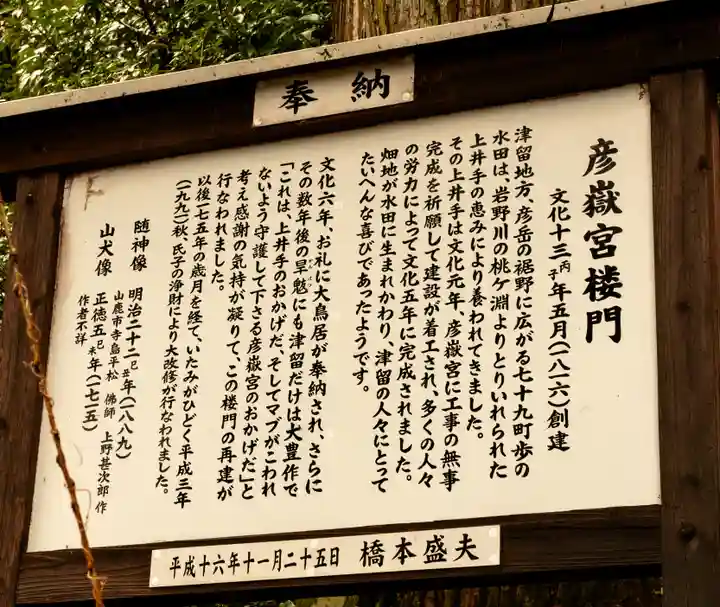 奉納
彦嶽宮楼門
文化十三丙子年五月(一八一六)創建
津留地方、彦岳の裾野に広がる七十九町歩の
水田は、岩野川の桃ケ淵よりとりいれられた
上井手の恵みにより養われてきました。
その上井手は文化元年、彦嶽宮に工事の無事
完成を祈願して建設が着工され、多くの人々
の労力によって文化五年に完成されました。
畑地が水田に生まれかわり、津留の人々にとって
たいへんな喜びであったようです。
文化六年、お礼に大鳥居が奉納され、さらに
その数年後の旱魃にも津留だけは大豊作で
「これは、上井手のおかげだ、そしてマブがこわれ
ないよう守護して下さる彦嶽宮のおかげだ」と
考え感謝の気持が凝りて、この楼門の再建が
行なわれました。
以後一七五年の歳月を経て、いたみがひどく平成三年
(一九九一)秋、氏子の浄財により大改修が行なわれました。
随神像 明治二十二己丑年(一八八九)
山鹿市寺島平松 佛師 上野甚次郎作
山犬像 正徳五乙未年(一七一五)
作者不詳
平成十六年十一月二十五日 橋本盛夫